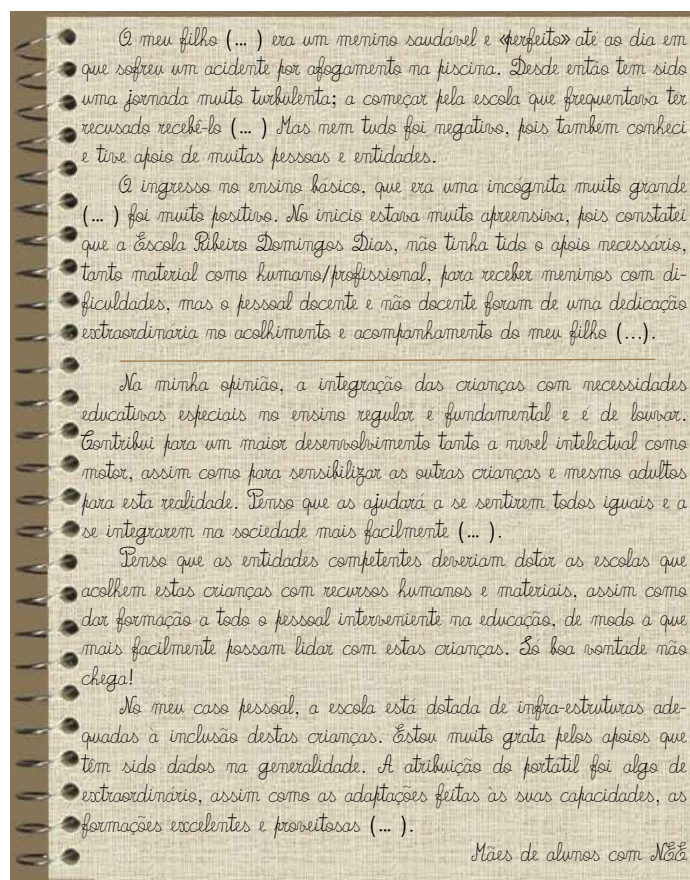 O meu filho (... ) era um menino saudável e «perfeito» até ao dia em
que sofreu um acidente por afogamento na piscina. Desde então tem sido
uma jornada muito turbulenta; a começar pela escola que frequentava ter
recusado recebê-lo (... ) Mas nem tudo foi negativo, pois também conheci
e tive apoio de muitas pessoas e entidades.
O ingresso no ensino básico, que era uma incógnita muito grande
(... ) foi muito positivo. No inicio estava muito apreensiva, pois constatei
que a Escola Ribeiro Domingos Dias, não tinha tido o apoio necessário,
tanto material como humano/profissional, para receber meninos com di-
ficuldades, mas o pessoal docente e não docente foram de uma dedicação
extraordinária no acolhimento e acompanhamento do meu filho (...).
Na minha opinião, a integração das crianças com necessidades
educativas especiais no ensino regular é fundamental e é de louvar.
Contribui para um maior desenvolvimento tanto a nível intelectual como
motor, assim como para sensibilizar as outras crianças e mesmo adultos
para esta realidade. Penso que as ajudará a se sentirem todos iguais e a
se integrarem na sociedade mais facilmente (... ).
Penso que as entidades competentes deveriam dotar as escolas que
acolhem estas crianças com recursos humanos e materiais, assim como
dar formação a todo o pessoal interveniente na educação, de modo a que
mais facilmente possam lidar com estas crianças. Só boa vontade não
chega!
No meu caso pessoal, a escola está dotada de infra-estruturas ade-
quadas à inclusão destas crianças. Estou muito grata pelos apoios que
têm sido dados na generalidade. A atribuição do portátil foi algo de
extraordinário, assim como as adaptações feitas às suas capacidades, as
formações excelentes e proveitosas (... ).
Mães de alunos com NEE